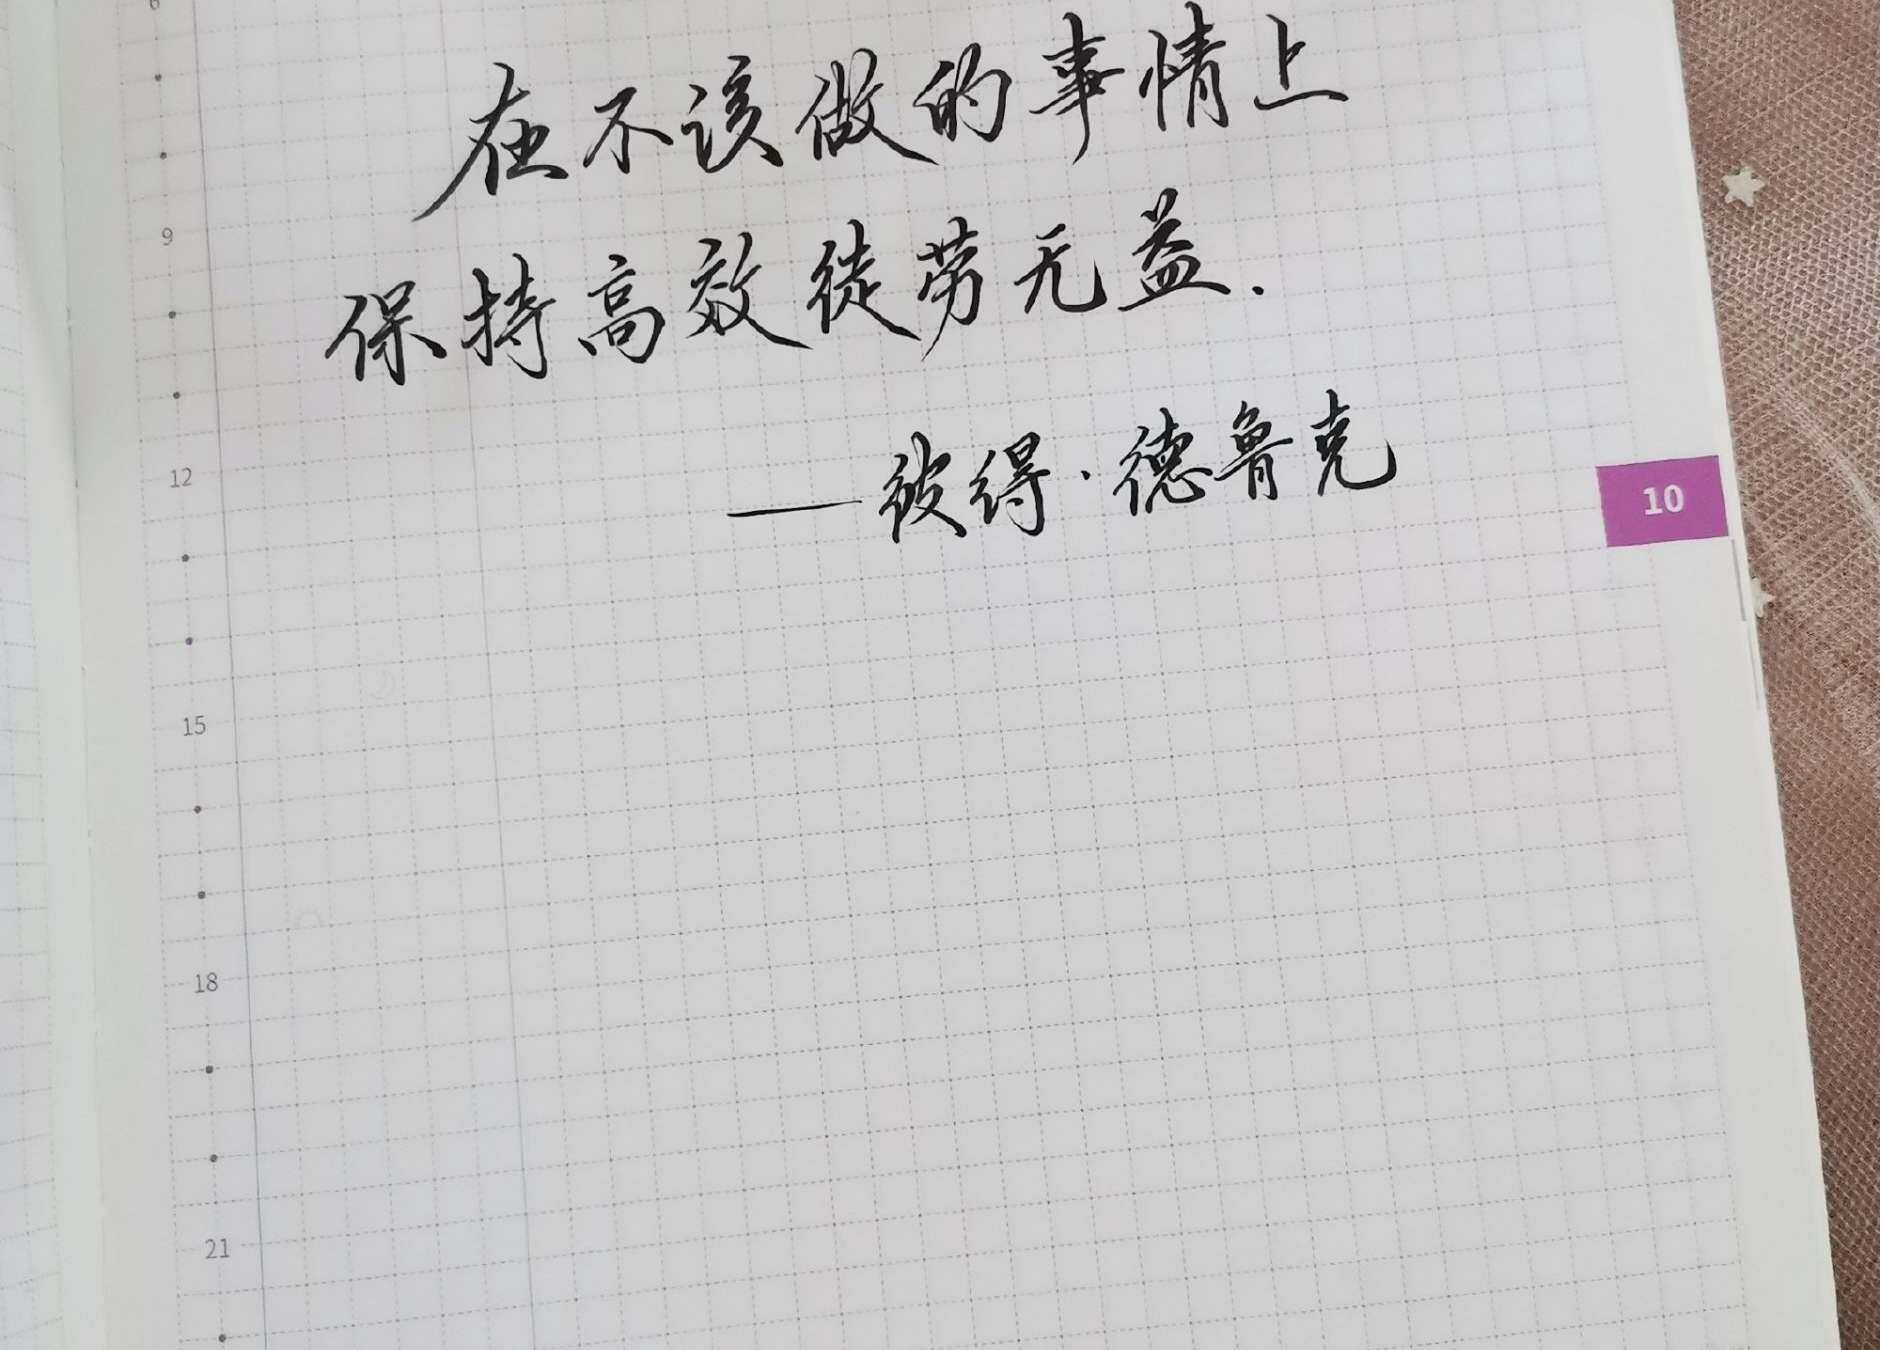 6
在不该做的事情上
9
保持高效徒劳无益.
——彼得·德鲁克
12
10
15
18
21